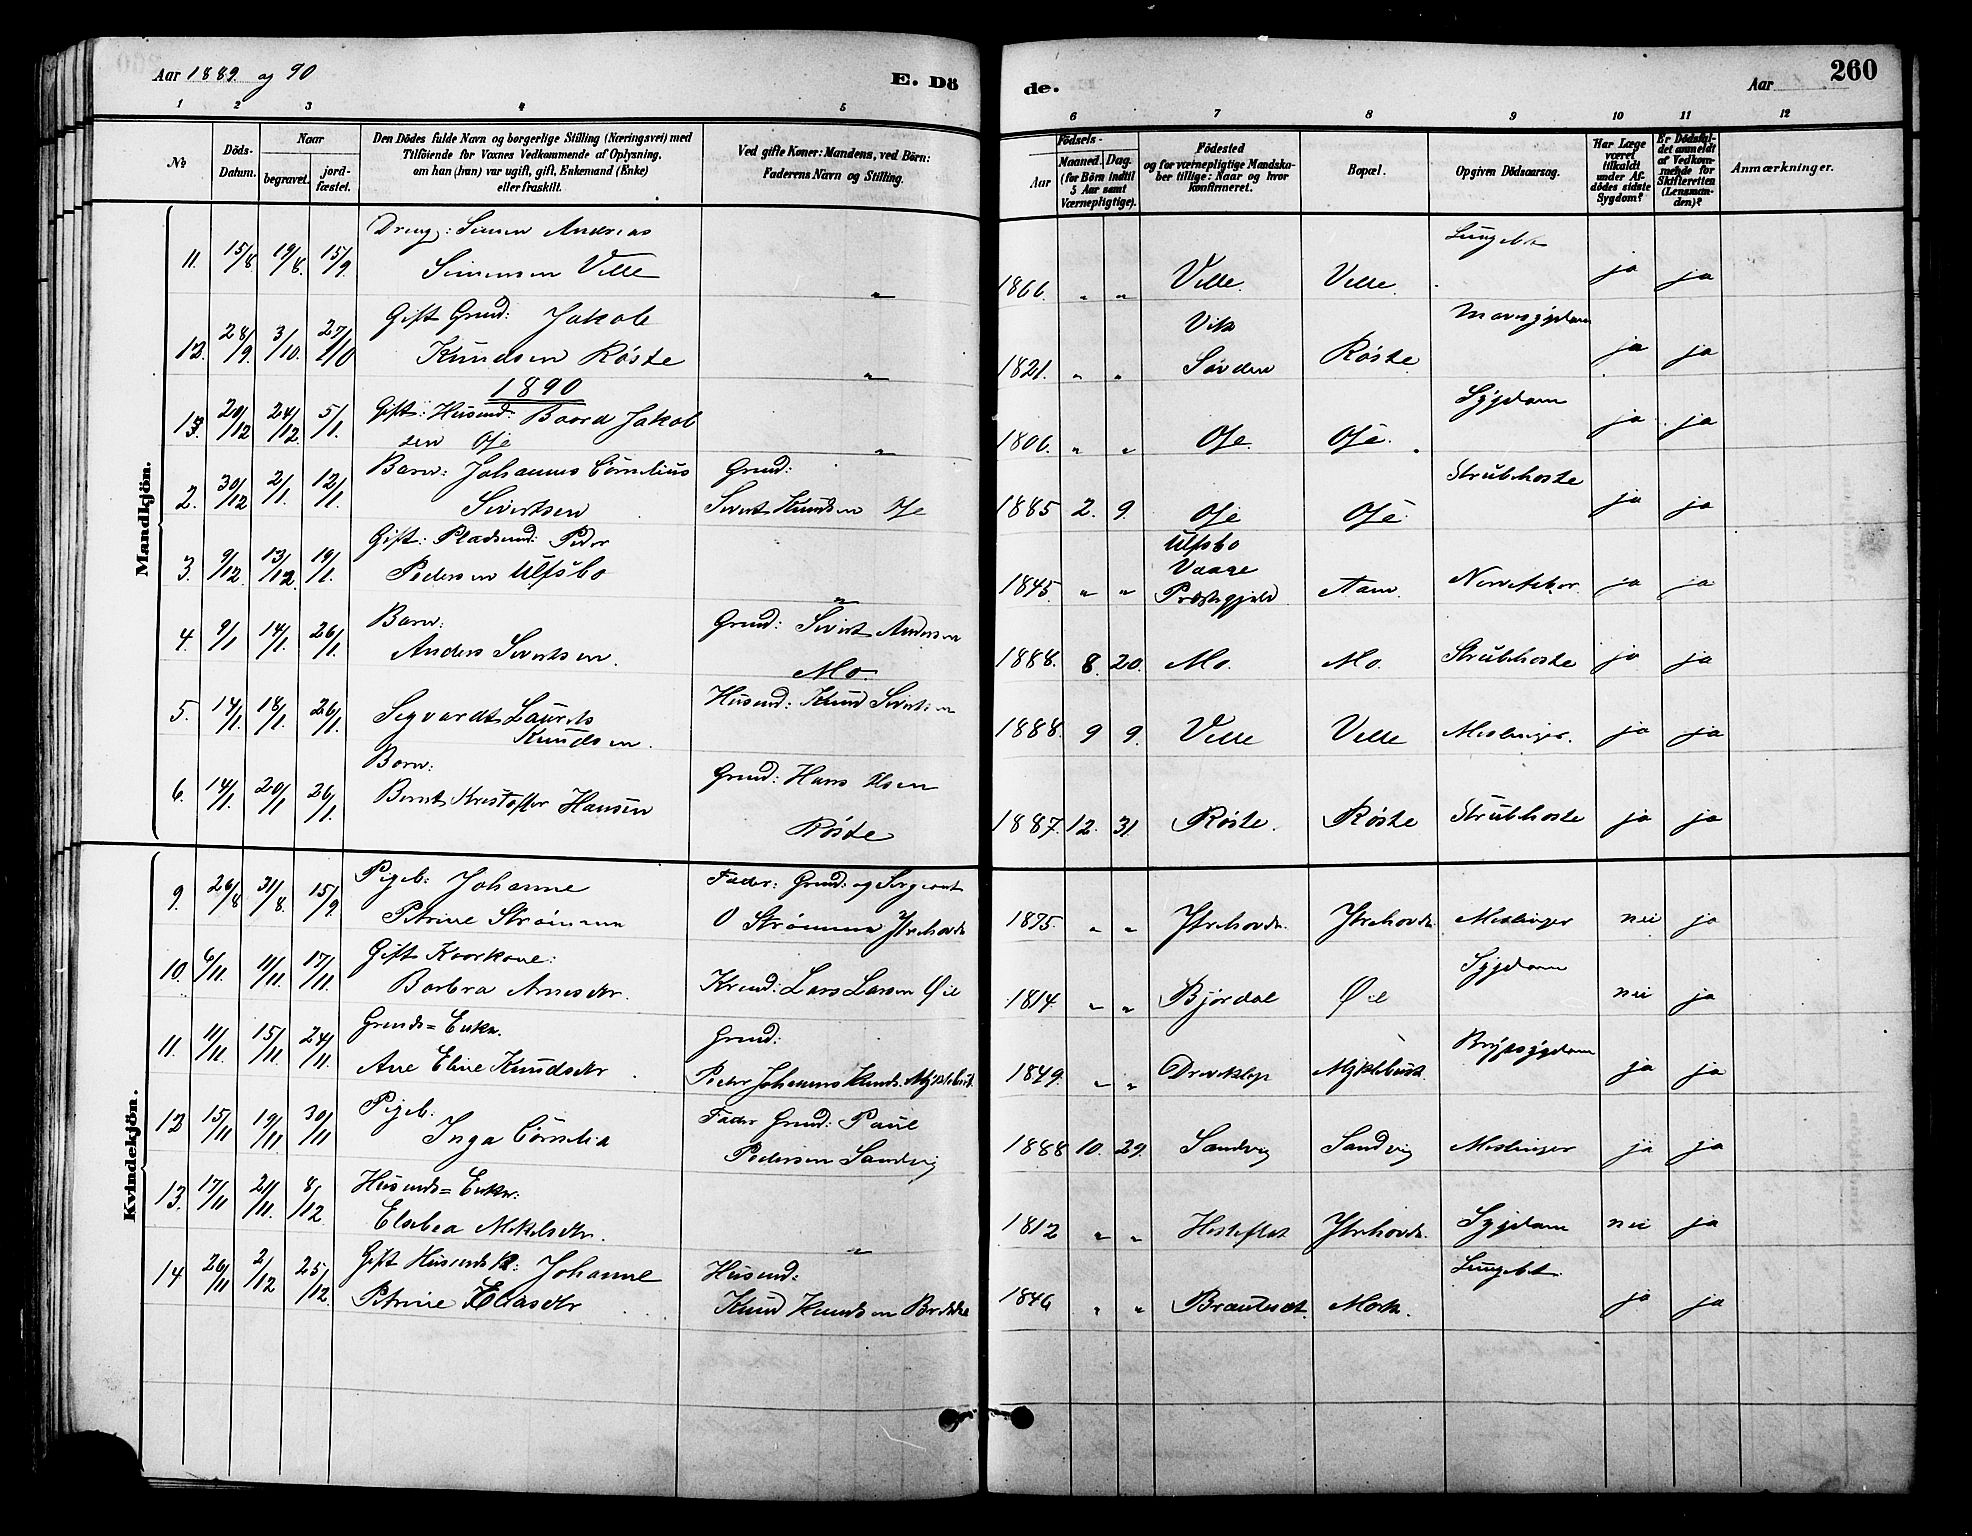 Aar 1889 og 90
E. Dö
de.
Aar
260
1 2 3 4 5
6 7 8 9 10 11 12
No
Döds-
Datum.
Naar
begravet.
jord-
fæstet.
Den Dödes fulde Navn og borgerlige Stilling (Næringsvei) med
Tilföiende for Voxnes Vedkommende af Oplysning,
om han (hun) var ugift, gift, Enkemand (Enke)
eller fraskilt.
Ved gifte Koner: Mandens, ved Börn:
Faderens Navn og Stilling.
Födsels-
Aar
Maaned. Dag.
(for Börn indtil
5 Aar samt
Værnepligtige).
Födested
og for værnepligtige Mandska-
ber tillige: Naar og hvor
konfirmeret.
Bopæl.
Opgiven Dödsaarsag.
Har Læge
været
tilkaldt
under Af-
dödes sidste
Sygdom?
Er Dödsfal-
det anmeldt
af Vedkom-
mende for
Skifteretten
(Lensman-
den)?
Anmærkninger.
Mandkjön.
11. 15/8 19/8. 15/9. Dreng: Simen Andreas
Simensen Velle " 1866. " " Velle. Velle. ja ja
12. 28/9. 3/10. 27/10 Gift Grmd: Jakob
Knudsen Röste " 1821. " " Vik
Søvden Röste Mavesygdom ja ja
1890
13. 20/12 24/12. 5/1. Gift: Husmd: Baard Jakob
sen Ose " 1806. " " Ose. Ose. Sygdom ja ja
2. 30/12 2/1. 12/1. Barn: Johannes Cornelius
Sivertsen Grmd:
Sivert Knudsen Ose 1885 2. 9. Ose Ose Strubehoste ja ja
3. 9/12. 13/12. 19/1. Gift: Pladsmd: Peder
Pedersen Ulfsbo " 1845. " " Ulfsbo
Vaage
Præstegjeld Aam ja ja
4. 9/1 14/1. 26/1. Barn:
Anders Sivertsen. Grmd: Sivert Andersen
Mo 1888. 8. 20. Mo. Mo. Strubehoste ja ja
5. 14/1. 18/1. 26/1. Sigvardt Laurits
Knudsen. Husmd: Knud Sivertsen 1888. 9 9. Velle Velle Meslinger. ja ja
6. 14/1. 20/1 26/1. Barn:
Bernt Kristoffer Hansen Grmd: Hans Olsen
Röste 1887. 12. 31. Röste. Röste Strubehoste ja ja
Kvindekjön.
9. 26/8 31/8. 15/9. Pigeb: Johanne
Petrine Strømmen Fader: Grmd: og Sergeant
O Strømmen Ytrehovde 1875. " " Ytrehovde. Ytrehovde. Meslinger nei ja
10. 6/11. 11/11. 17/11. Gift Kaarkone:
Barbra Arnesdtr. Krmd: Lars Larsen Øie 1814. " " Bjørdal Øie Sygdom nei ja
11. 11/11. 15/11. 24/11. Grmds= Enke.
Ane Eline Knudsdtr Grmd:
Peder Johannes Knuds. Myklebust 1849. " " Myklebust. ja ja
12 15/11 19/11 30/11 Pigeb:
Inga Cornelia Fader Grmd: Paul
Pedersen Sandvig 1888 10. 29. Sandvig Sandvig Meslinger ja ja
13. 17/11 21/11. 8/12. Husmds= Enke:
Elsebea Mikelsdtr. " 1812 " " Hesteflot Ytrehovde. Sygdom nei ja
14 26/11 2/12 25/12. Gift Husmds K: Johanne
Petrine Eliasdtr Husmd:
Knud Knudsen 1846 " " Brauteset. Mork. ja ja